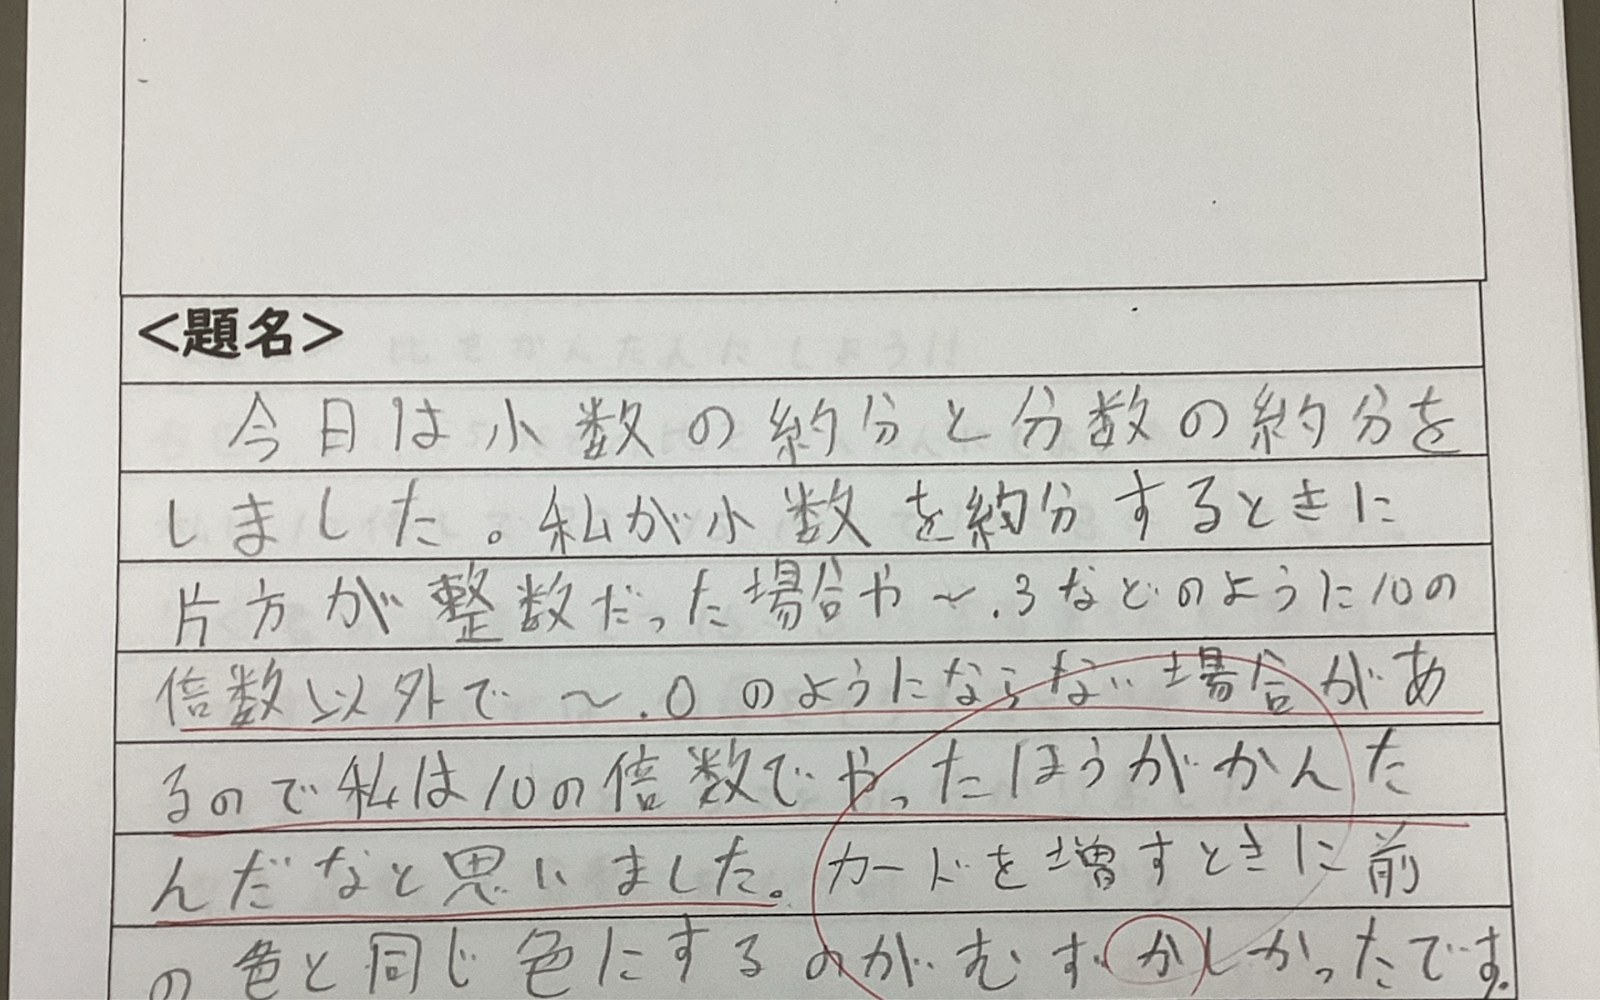 <題名>
今日は小数の約分と分数の約分を
しました。私が小数を約分するときに
片方が整数だった場合や〜.3などのように10の
倍数以外で〜.0のようにならない場合があ
るので私は10の倍数でやったほうがかんた
んだなと思いました。カードを増すときに前
の色と同じ色にするのがむずかしかったです。